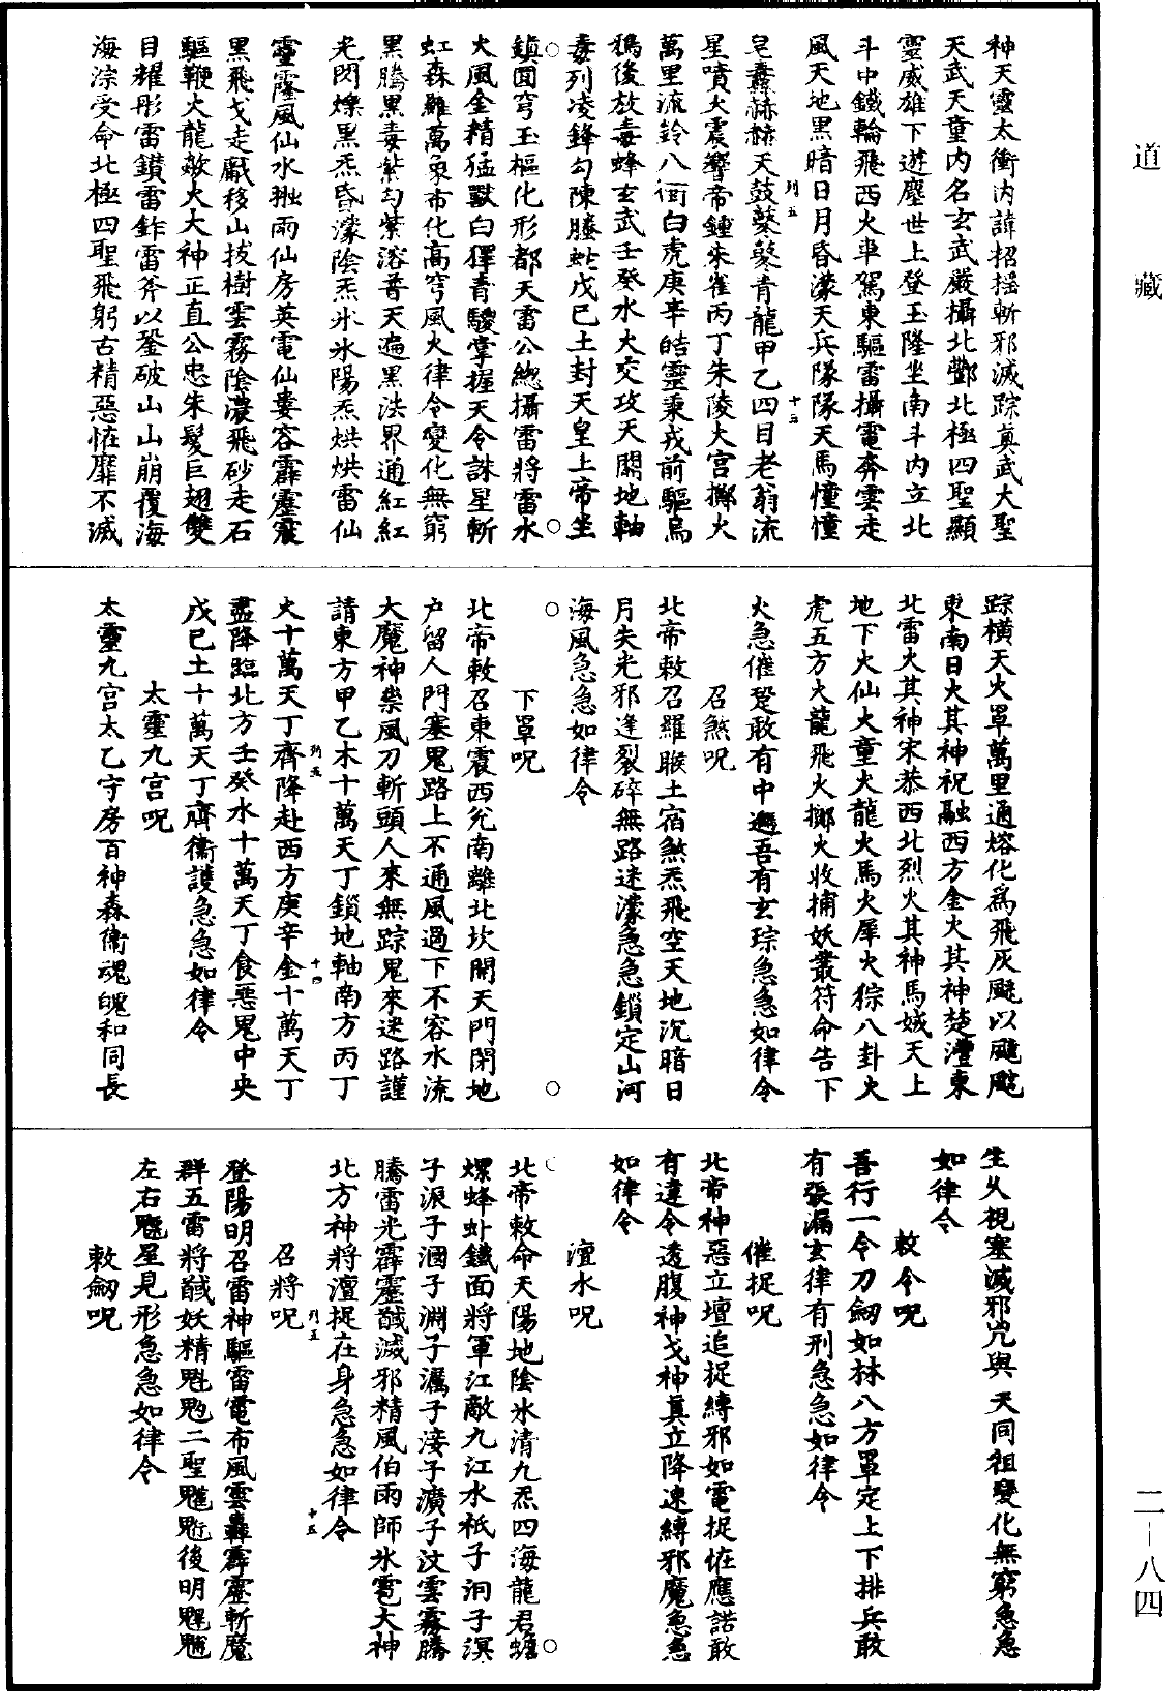 道藏
神天靈太衝內諱招搖斬邪滅踪真武大聖
天武天童內名玄武嚴攝北酆北極四聖顯
靈威雄下遊塵世上登玉隆坐南斗內立北
斗中鐵輪飛西火車駕東驅雷攝電奔雲走
風天地黑暗日月昏濛天兵隊隊天馬憧憧
皂纛赫赫天鼓鼕鼕青龍甲乙四目老翁流
星噴火震響帝鍾朱雀丙丁朱陵大宮擲火
萬里流鈴八衝白虎庚辛皓靈秉戎前驅烏
鴉後放毒蜂玄武壬癸水火交攻天關地軸
毒列凌鋒勾陳螣蛇戊己土封天皇上帝坐
鎮圓穹玉樞化形都天雷公總攝雷將雷水
火風金精猛獸白獐青驄掌握天令誅星斬
虹森羅萬象布化高穹風火律令變化無窮
黑騰黑毒紫勾紫溶普天遍黑洪界通紅紅
光閃爍黑炁昏濛陰炁氷氷陽炁烘烘雷仙
靈霳風仙水翀雨仙房英電仙婁容霹靂震
黑飛戈走嚴移山拔樹雲霧陰濃飛砂走石
驅鞭火龍欻火大神正直公忠朱髮巨翅雙
目耀彤雷鑽雷鈼雷斧以鋬破山山崩覆海
海淙受命北極四聖飛躬古精惡怪靡不滅
踪橫天火罩萬里通熔化為飛灰颷以颰颰
東南日火其神祝融西方金火其神楚澶東
北雷火其神宋恭西北烈火其神馬娀天上
地下火仙火童火龍火馬火犀火猔八卦火
虎五方火龍飛火擲火收捕妖叢符命告下
火急催趕敢有中遏吾有玄琮急急如律令
召煞呪
北帝敕召羅睺土宿煞炁飛空天地沉暗日
月失光邪逢裂碎無路迷濛急急鎖定山河
海風急急如律令
下罩呪
北帝敕召東震西兌南離北坎開天門閉地
户留人門塞鬼路上不通風過下不容水流
大魔神樂風刀斬頭人來無踪鬼來迷路謹
請東方甲乙木十萬天丁鎖地軸南方丙丁
火十萬天丁齊降赴西方庚辛金十萬天丁
盡降臨北方壬癸水十萬天丁食惡鬼中央
戊己土十萬天丁齊衛護急急如律令
太靈九宮呪
太靈九宮太乙守房百神森衛魂魄和同長
生久視塞滅邪兇與天同祖變化無窮急急
如律令
敕令呪
吾行一令刀劒如林八方罩定上下排兵敢
有張漏玄律有刑急急如律令
催捉呪
北帝神惡立壇追捉縛邪如電捉怪應諾敢
有違令透腹神戈神真立降速縛邪魔急急
如律令
澶水呪
北帝敕命天陽地陰氷清九炁四海龍君蟾
螺蜂虯鐵面將軍江敵九江水衹子泂子溟
子淚子涸子淵子濿子淁子濆子汶雲霧騰
騰雷光霹靂馘滅邪精風伯雨師氷雹大神
北方神將澶捉在身急急如律令
召將呪
登陽明召雷神驅雷電布風雲轟霹靂斬魔
群五雷將馘妖精魁魀二聖魓魒後明魓魖
左右魓星見形急急如律令
敕劒呪
二–八四